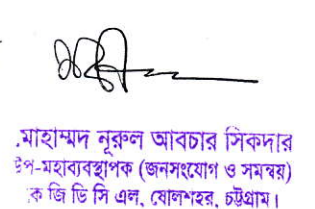 মোহাম্মদ নূরুল আবচার সিকদার
উপ-মহাব্যবস্থাপক (জনসংযোগ ও সমন্বয়)
কে জি ডি সি এল, ষোলশহর, চট্টগ্রাম।